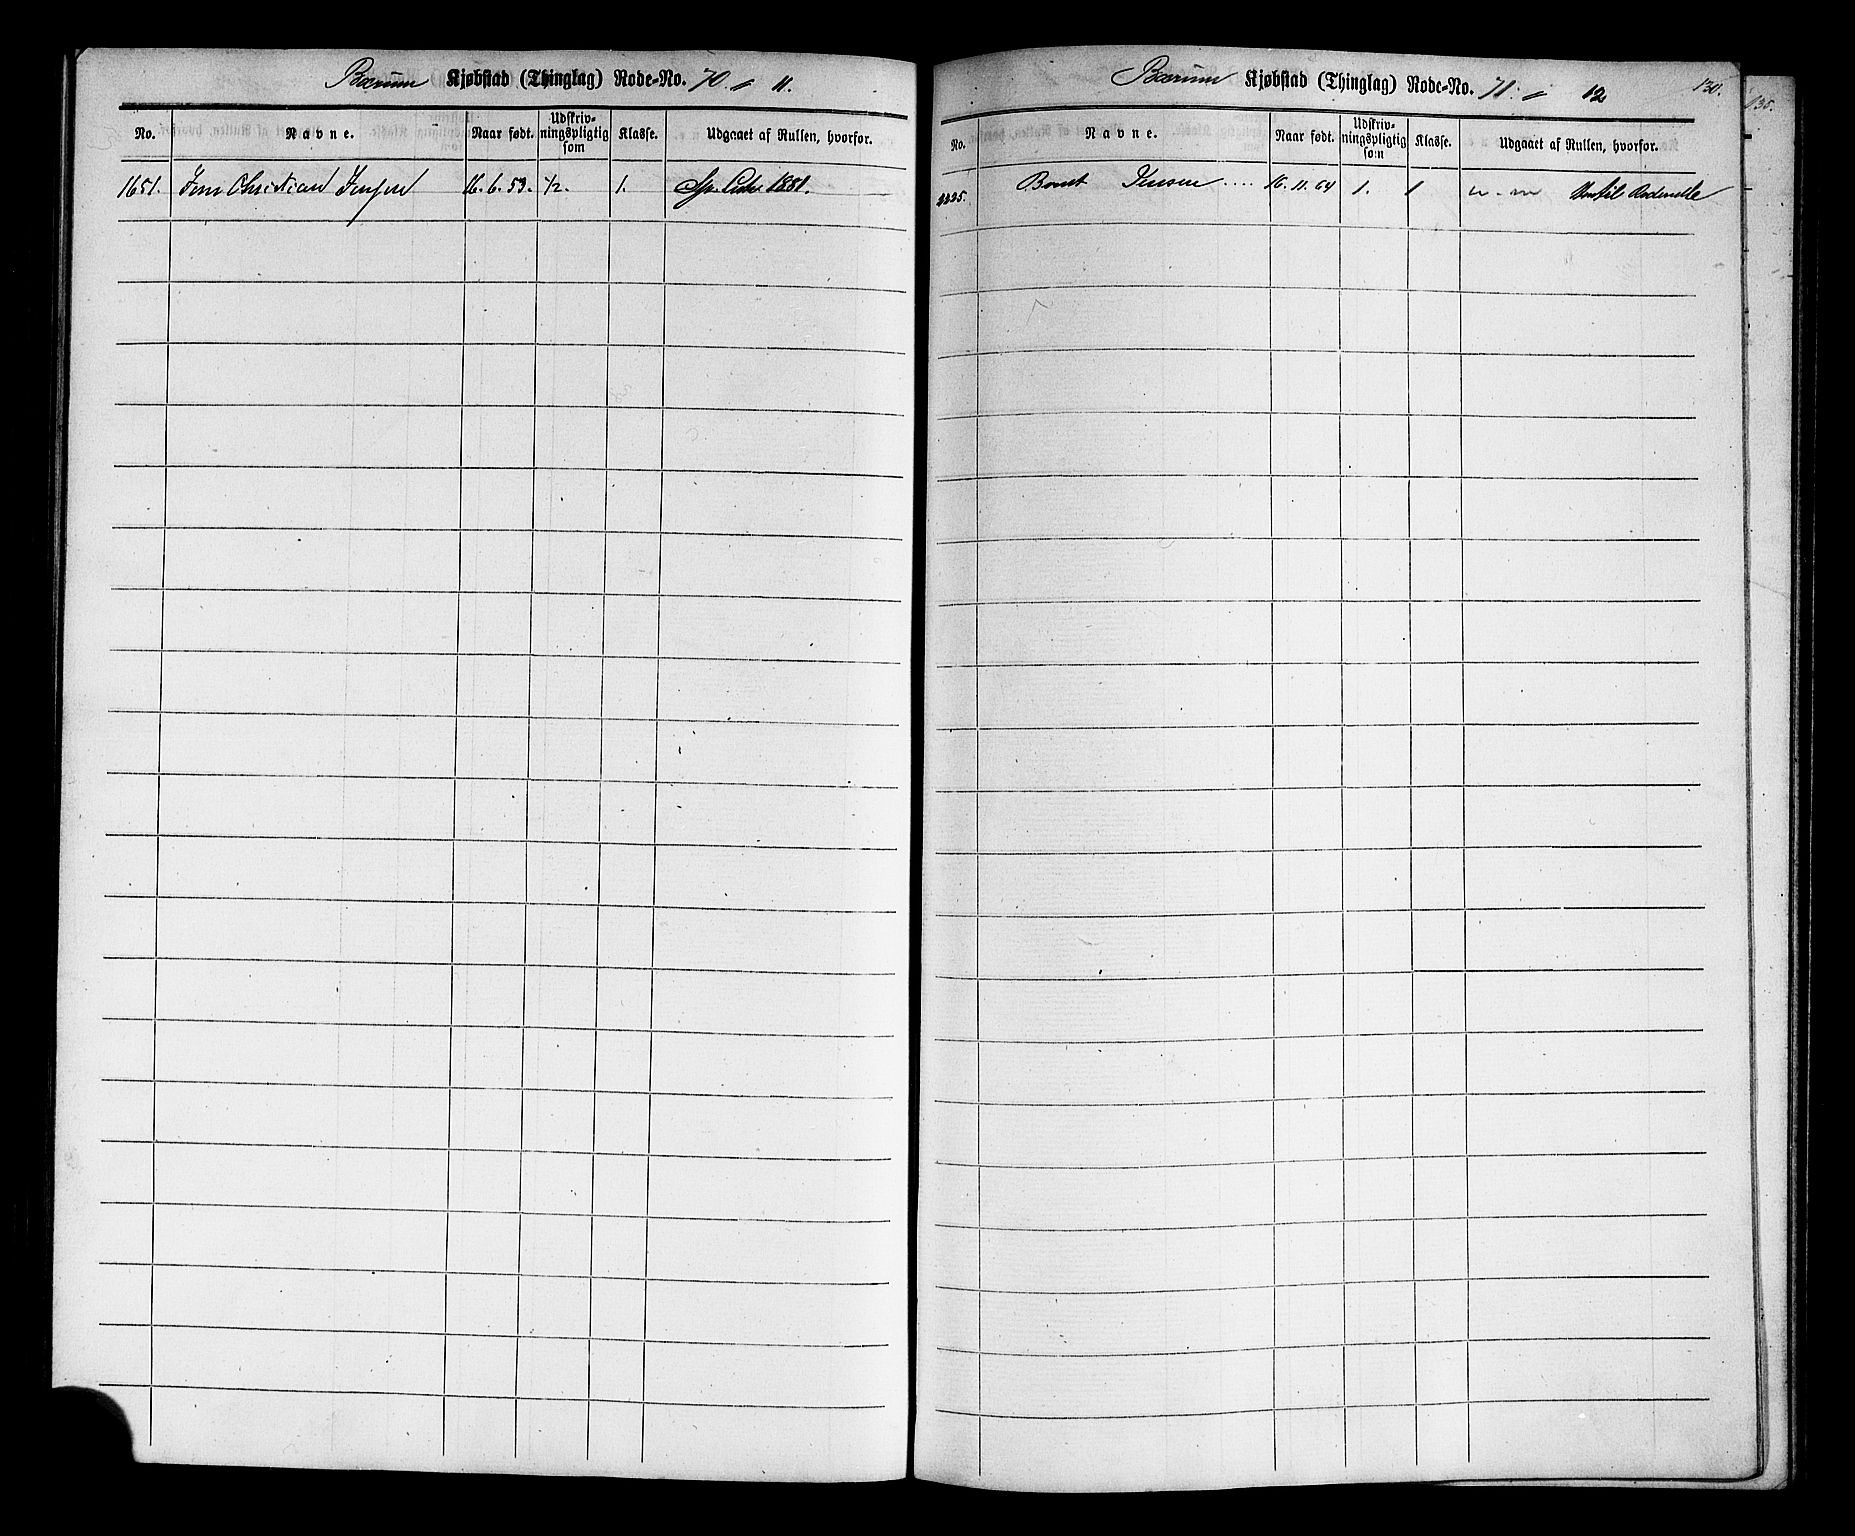 Bærum Kjøbstad (Thinglag) Rode-No. 70. 11.
No. Navne. Naar født. Udskriv-ningspligtig som Klasse. Udgaaet af Rullen, hvorfor.
1651. Jens Christian Jensen 16. 6. 53. 1/2. 1. 1881.
130.
Bærum Kjøbstad (Thinglag) Rode-No. 71. 12
No. Navne. Naar født. Udskriv-ningspligtig som Klasse. Udgaaet af Rullen, hvorfor.
2225. Bernt Jensen .... 16. 11. 64 1. 1
135.